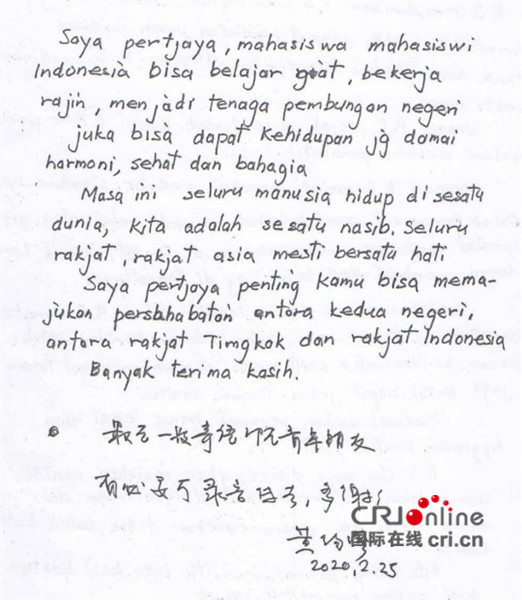 Saya pertjaya, mahasiswa mahasiswi
Indonesia bisa belajar giat, bekerja
rajin, menjadi tenaga pembungan negeri
juka bisa dapat kehidupan jg damai
harmoni, sehat dan bahagia
Masa ini seluru manusia hidup di sesatu
dunia, kita adalah sesatu nasib, seluru
rakjat, rakjat asia mesti bersatu hati
Saya pertjaya penting kamu bisa mema-
jukan persbhabatan antara kedua negeri,
antara rakjat Timgkok dan rakjat Indonesia
Banyak terima kasih.
最后一段寄语 青年朋友
多谢
CRIonline
国际在线 cri.cn
2020.2.25